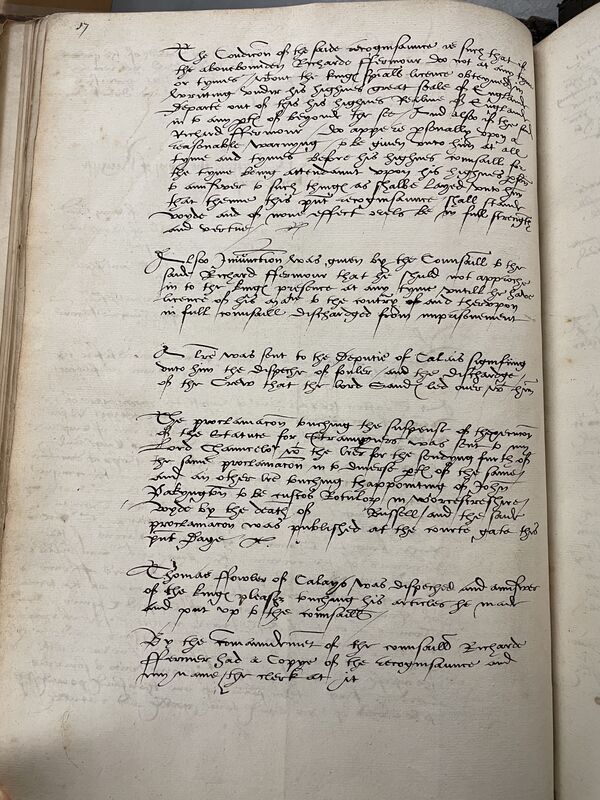 17
The Condicõn of the saide recognisaunce is such that if
the abovebounden Richarde ffermour do not at any tyme
or tymes wtout the kingℓ spiall licence obteyned in
writting undir his highnes great Seale of England
departe out of this his highnes Realme of England
in to any ptℓ of beyond the see And also if the said
Richard ffermour do appere psonally upon a
reasonable warnyng to be given unto him at all
tyme and tymes before his highnes counsaill for
the tyme being attendaunt upon his highnes pson
to answer to such thingℓ as shalbe layed unto him
that thenne this pnt recognisaunce shall stande
voyde and of none effect orels be in full strength
and vertue
Also Iniunction was given by the Counsaill to the
saide Richard ffermour that he shuld not approche
in to the kingℓ presence at any tyme untill he have
licence of his mate to the contrary and therupon
in full counsaill dischardged from imprisonement
A lre was sent to the Deputie of Calais signifieng
unto him the dispeche of fouler and the dischardge
of the Crew that the lord Sandℓ led over wt him
The proclamacõn touching the suspense of thexecucion
of the Statute for Straungiers was sent to my
Lord Chauncelor wt the lres for the sending furth of
the same proclamacõn in to diverse ptℓ of the same
and an other lre touching thappointing of John
Pakyngton to be custos Rotulorũ in Worcestreshire
voyde by the death of Russell and the saide
proclamacõn was published at the courte gate this
pnt daye
Thomas ffowler of Calays was dispeched and answer
of the kingℓ pleasr touching his articles he made
and put up to the counsaill
By the comaundemẽt of the counsaill Richarde
ffermer had a Copye of the recognisaunce and
my name the clerk at it